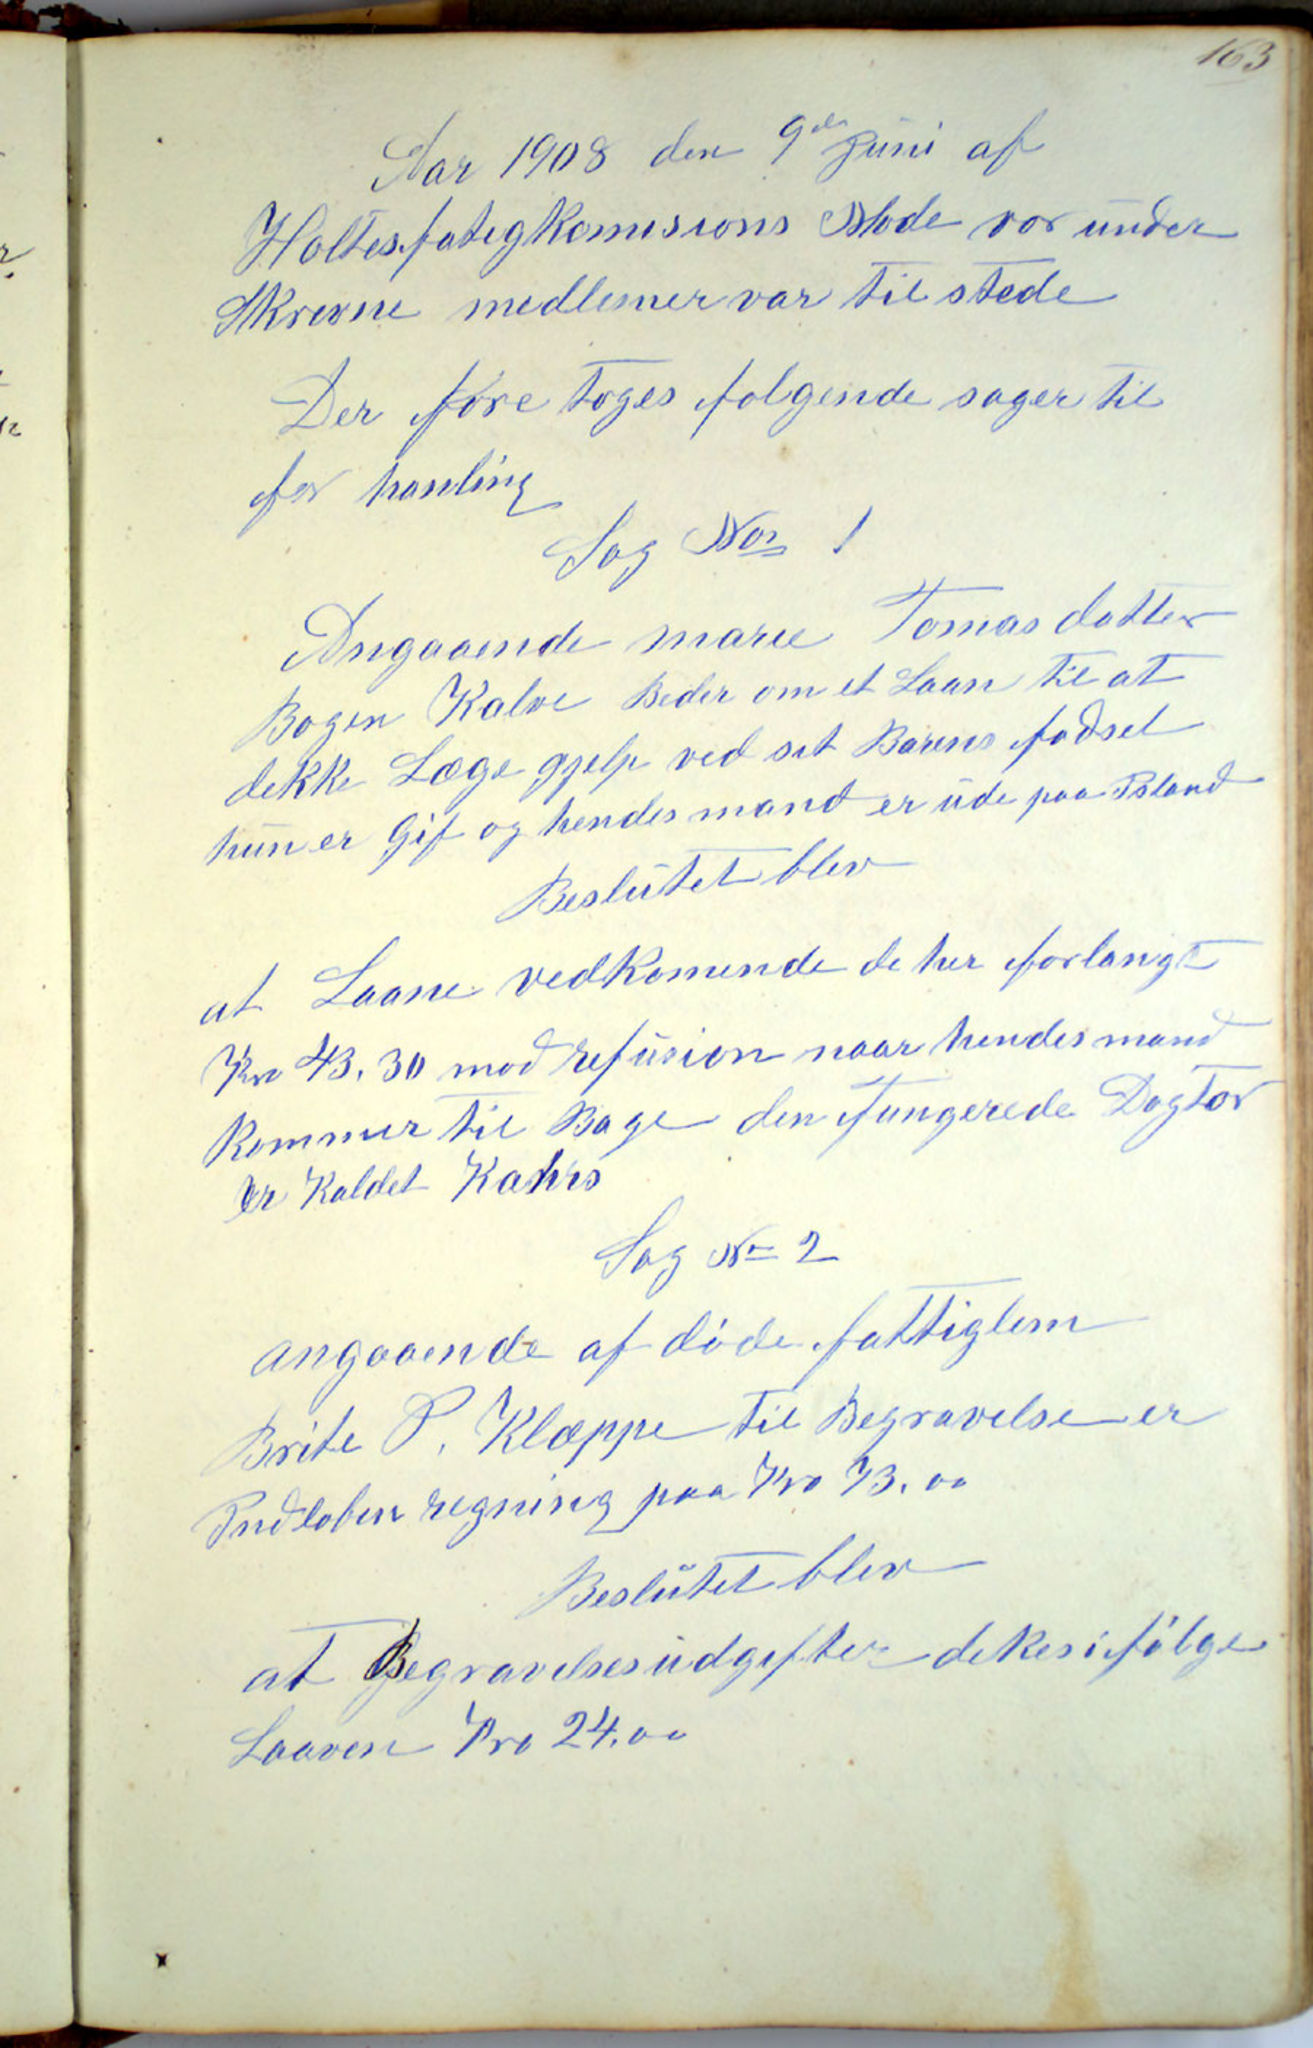 163
Aar 1908 den 9de Juni af
Holtesfatigkomisions Mode vor under
Skrevne medlemer var til stede
Der føre toges folgende sager til
for hanling
Sag Nor 1
Angaaende marie Tomas datter
Bogen Kalve Beder om et Laan til at
dekke Læge gjelp ved sit Barns fødsel
hun er Gif og hendes mand er ude paa Island
Beslutet blev
at Laane vedkomende de her forlangt
Kro 43.30 mod refusion naar hendes mand
kommer til Bage den fungerede Dogtor
er Kaldet Kahrs
Sag No 2
angaaende af døde fattiglem
Brite P. Klæppe til Begravelse er
Indloben regning paa Kro 73.00
Beslutet blev
at Begravelsesudgifter dekes ifølge
Laaven Kro 24.00